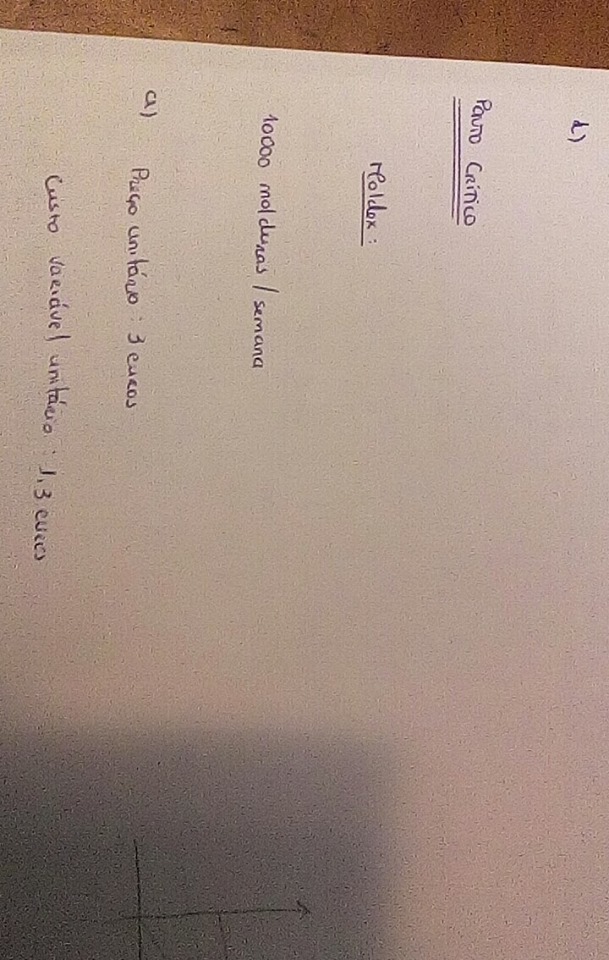 d)
PONTO CRÍTICO
Moldex:
10000 molduras / semana
a) Preço unitário : 3 euros
Custo variável unitário : 1,3 euros